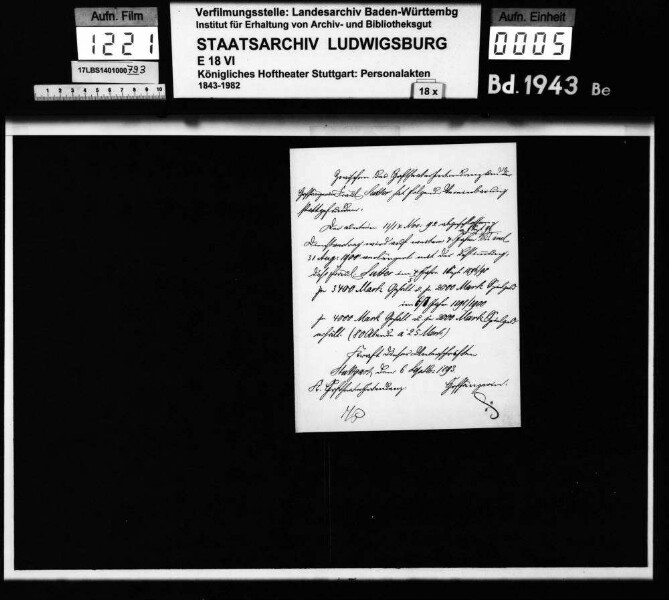 Aufn. Film
1221
17LBS1401000793
1 2 3 4 5 6 7 8 9 10
Verfilmungsstelle: Landesarchiv Baden-Württembg
Institut für Erhaltung von Archiv- und Bibliotheksgut
STAATSARCHIV LUDWIGSBURG
E 18 VI
Königliches Hoftheater Stuttgart: Personalakten
1843-1982
18 x
Aufn. Einheit
0005
Bd. 1943 Be
Zwischen der Hoftheaterintendanz und der
Hofsängerin Sutter hat folgende Vereinbarung
stattgefunden.
Der Nov. 92 abgeschlossene
Dienstvertrag wird auf weitere Jahre
31 Aug. 1900 verlängert mit der Bestimmung,
daß Sutter im Jahr
je 3400 Mark Gehalt u. je 2000 Mark Spielgeld
im Jahr 1898/1900
je 4000 Mark Gehalt u. je 2000 Mark Spielgeld
erhält (80 Abende à 25 Mark)
Kraft dieser Unterschriften
Stuttgart, den 6 1893
K. Hoftheaterintendanz. Hofsängerin.